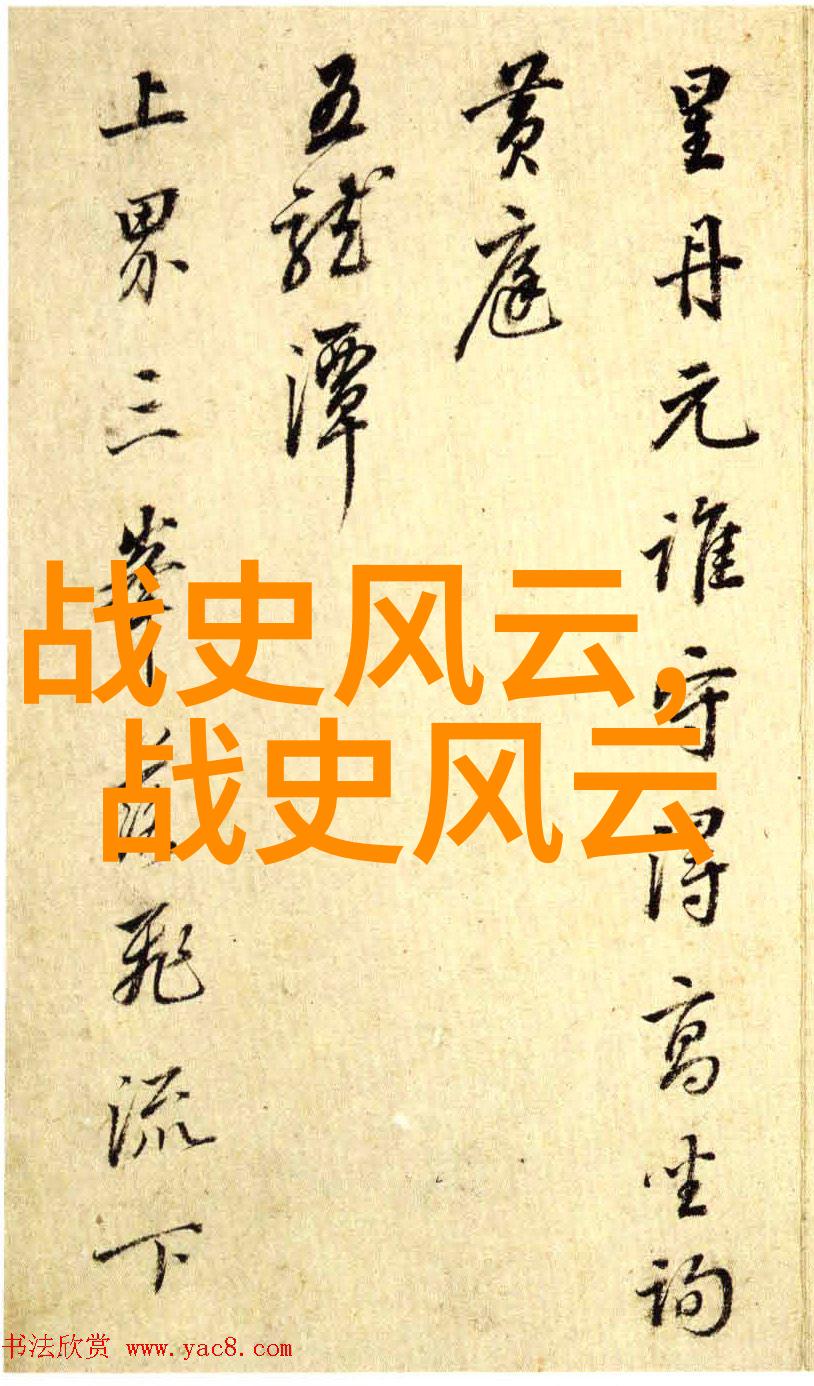 星丹元誰守得高坐詢
黄庭
五龍潭
上界三峯飛流下
战史风云,
战史风云
书法欣赏 www.yac8.com